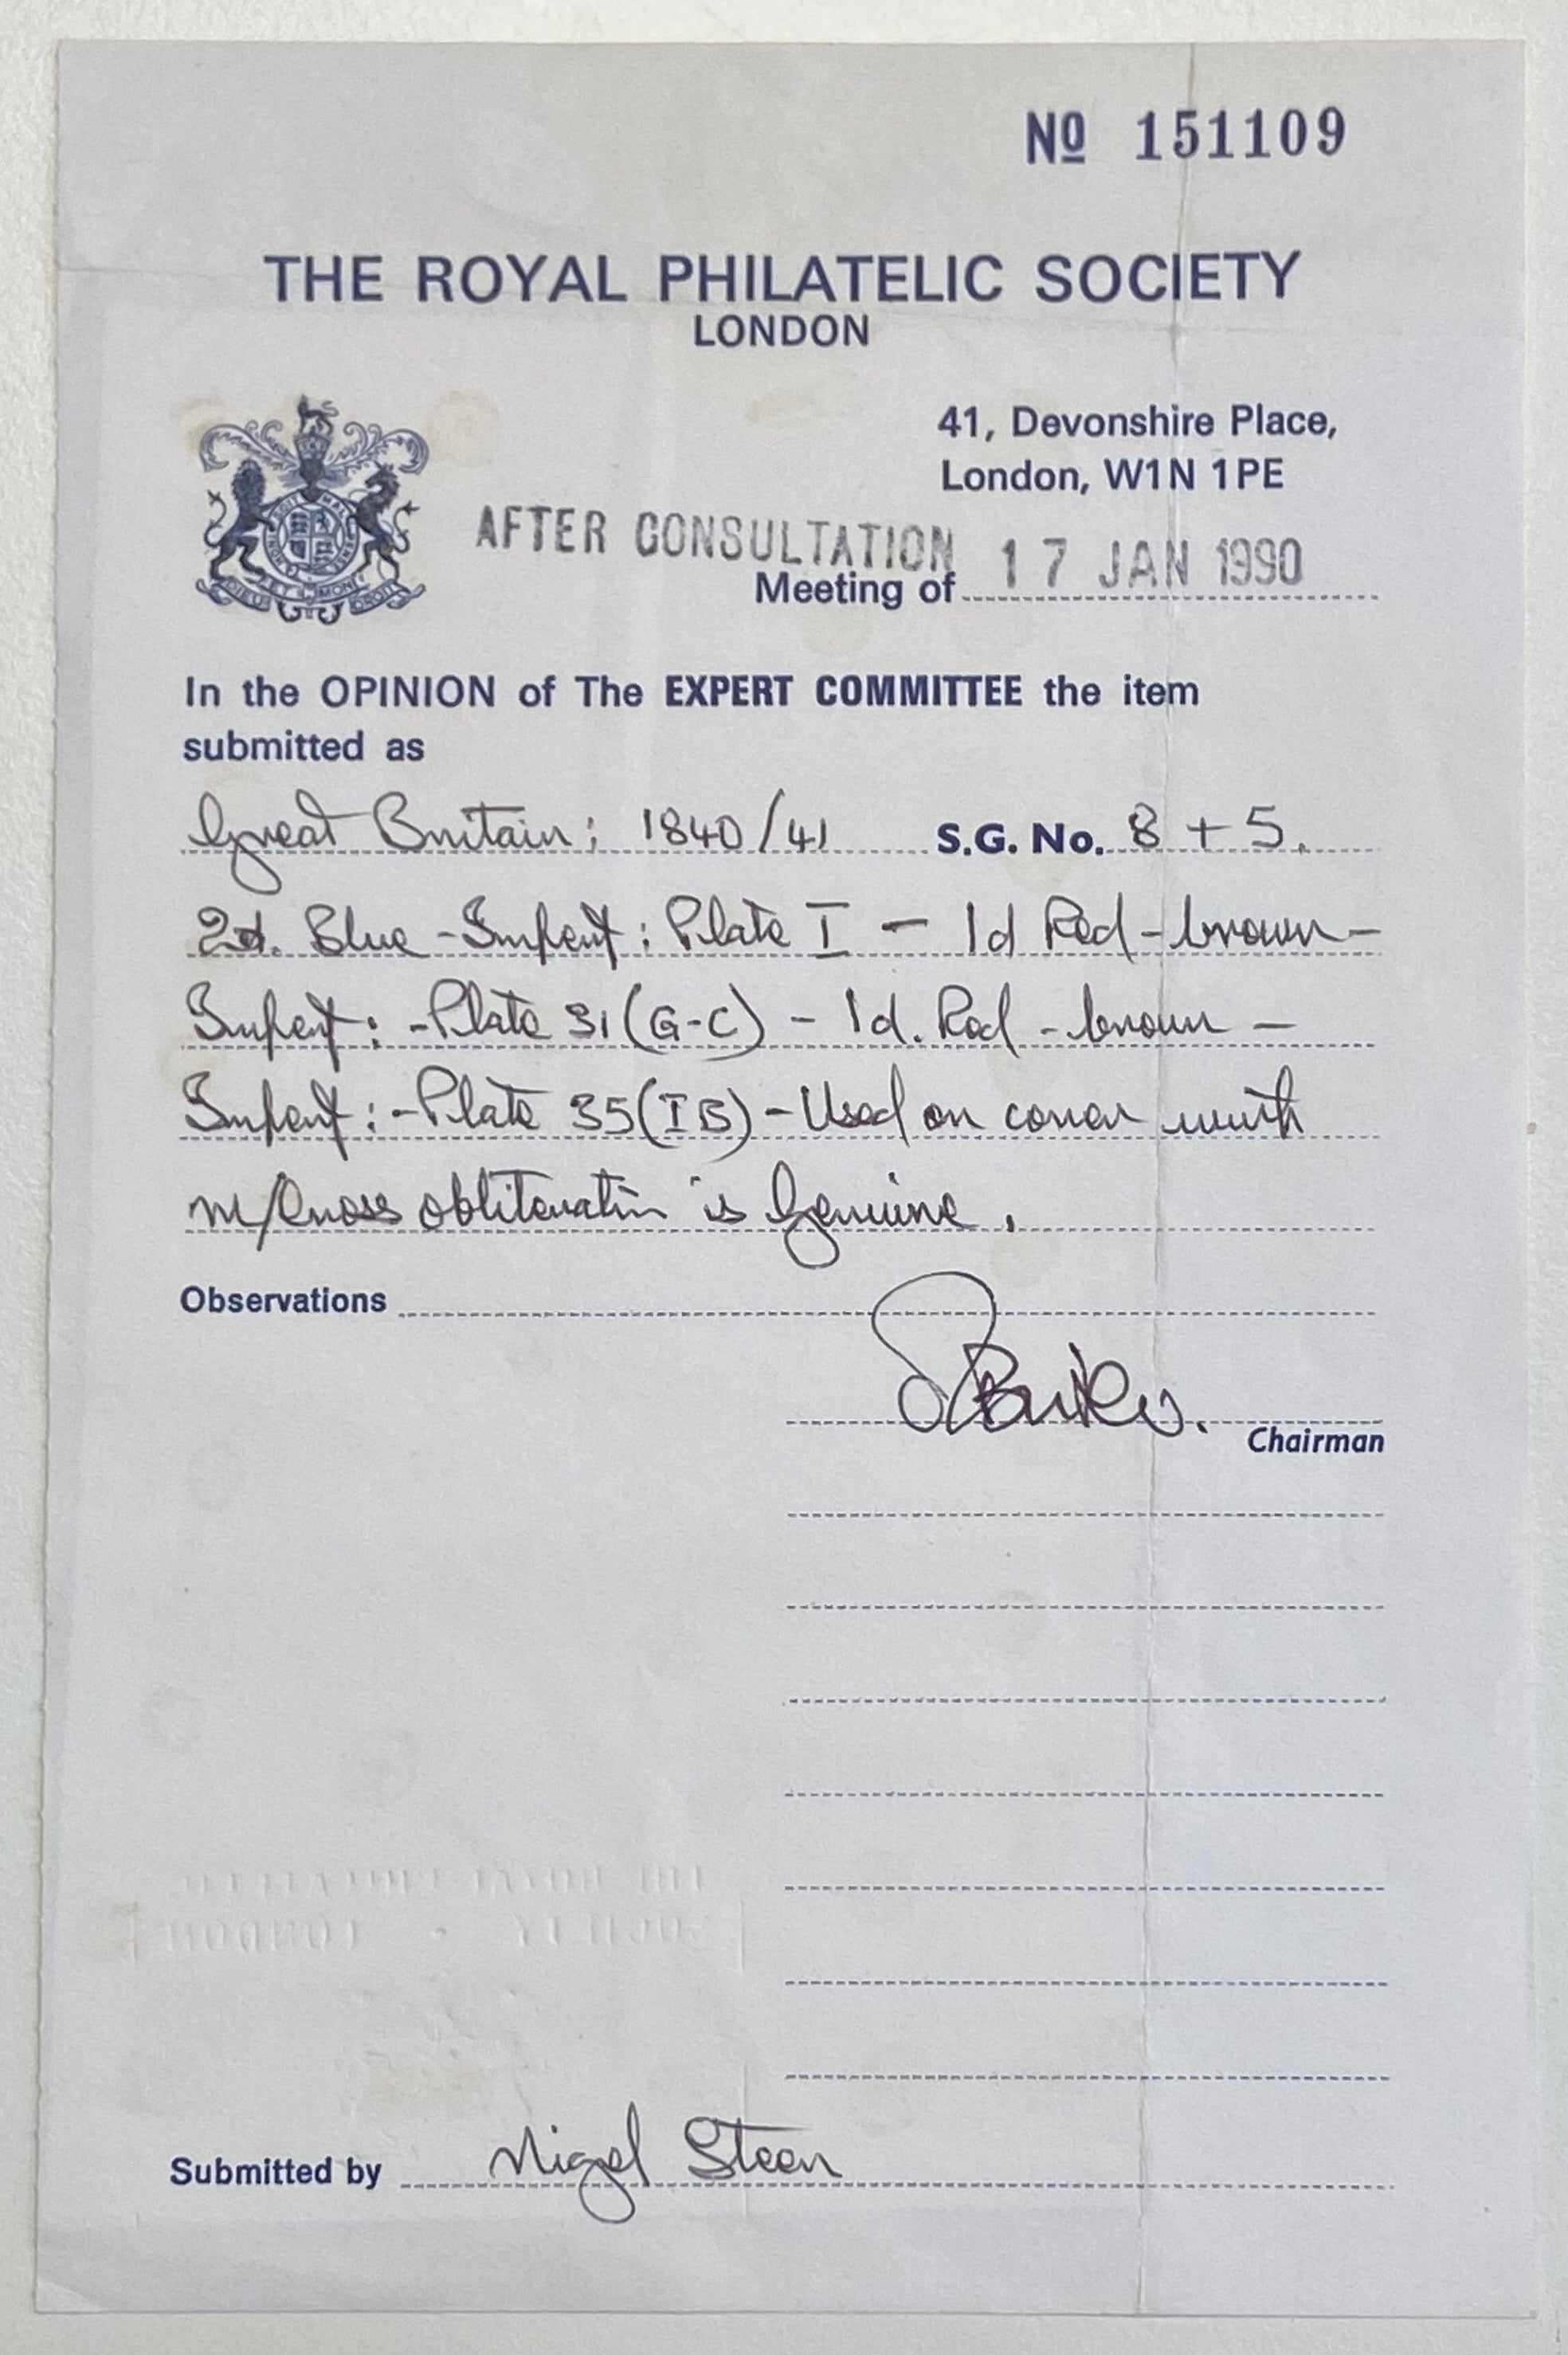 Nº 151109
THE ROYAL PHILATELIC SOCIETY
LONDON
41, Devonshire Place,
London, W1N 1PE
AFTER CONSULTATION 17 JAN 1990
Meeting of
In the OPINION of The EXPERT COMMITTEE the item
submitted as
Great Britain: 1840/41 S.G. No. 8 + 5.
2d. Blue - Imperf: Plate I - 1d Red-brown -
Imperf: - Plate 31 (G-C) - 1d. Red-brown -
Imperf: - Plate 35 (IB) - Used on cover with
m/Cross obliteration is Genuine.
Observations
Chairman
Submitted by Nigel Steen